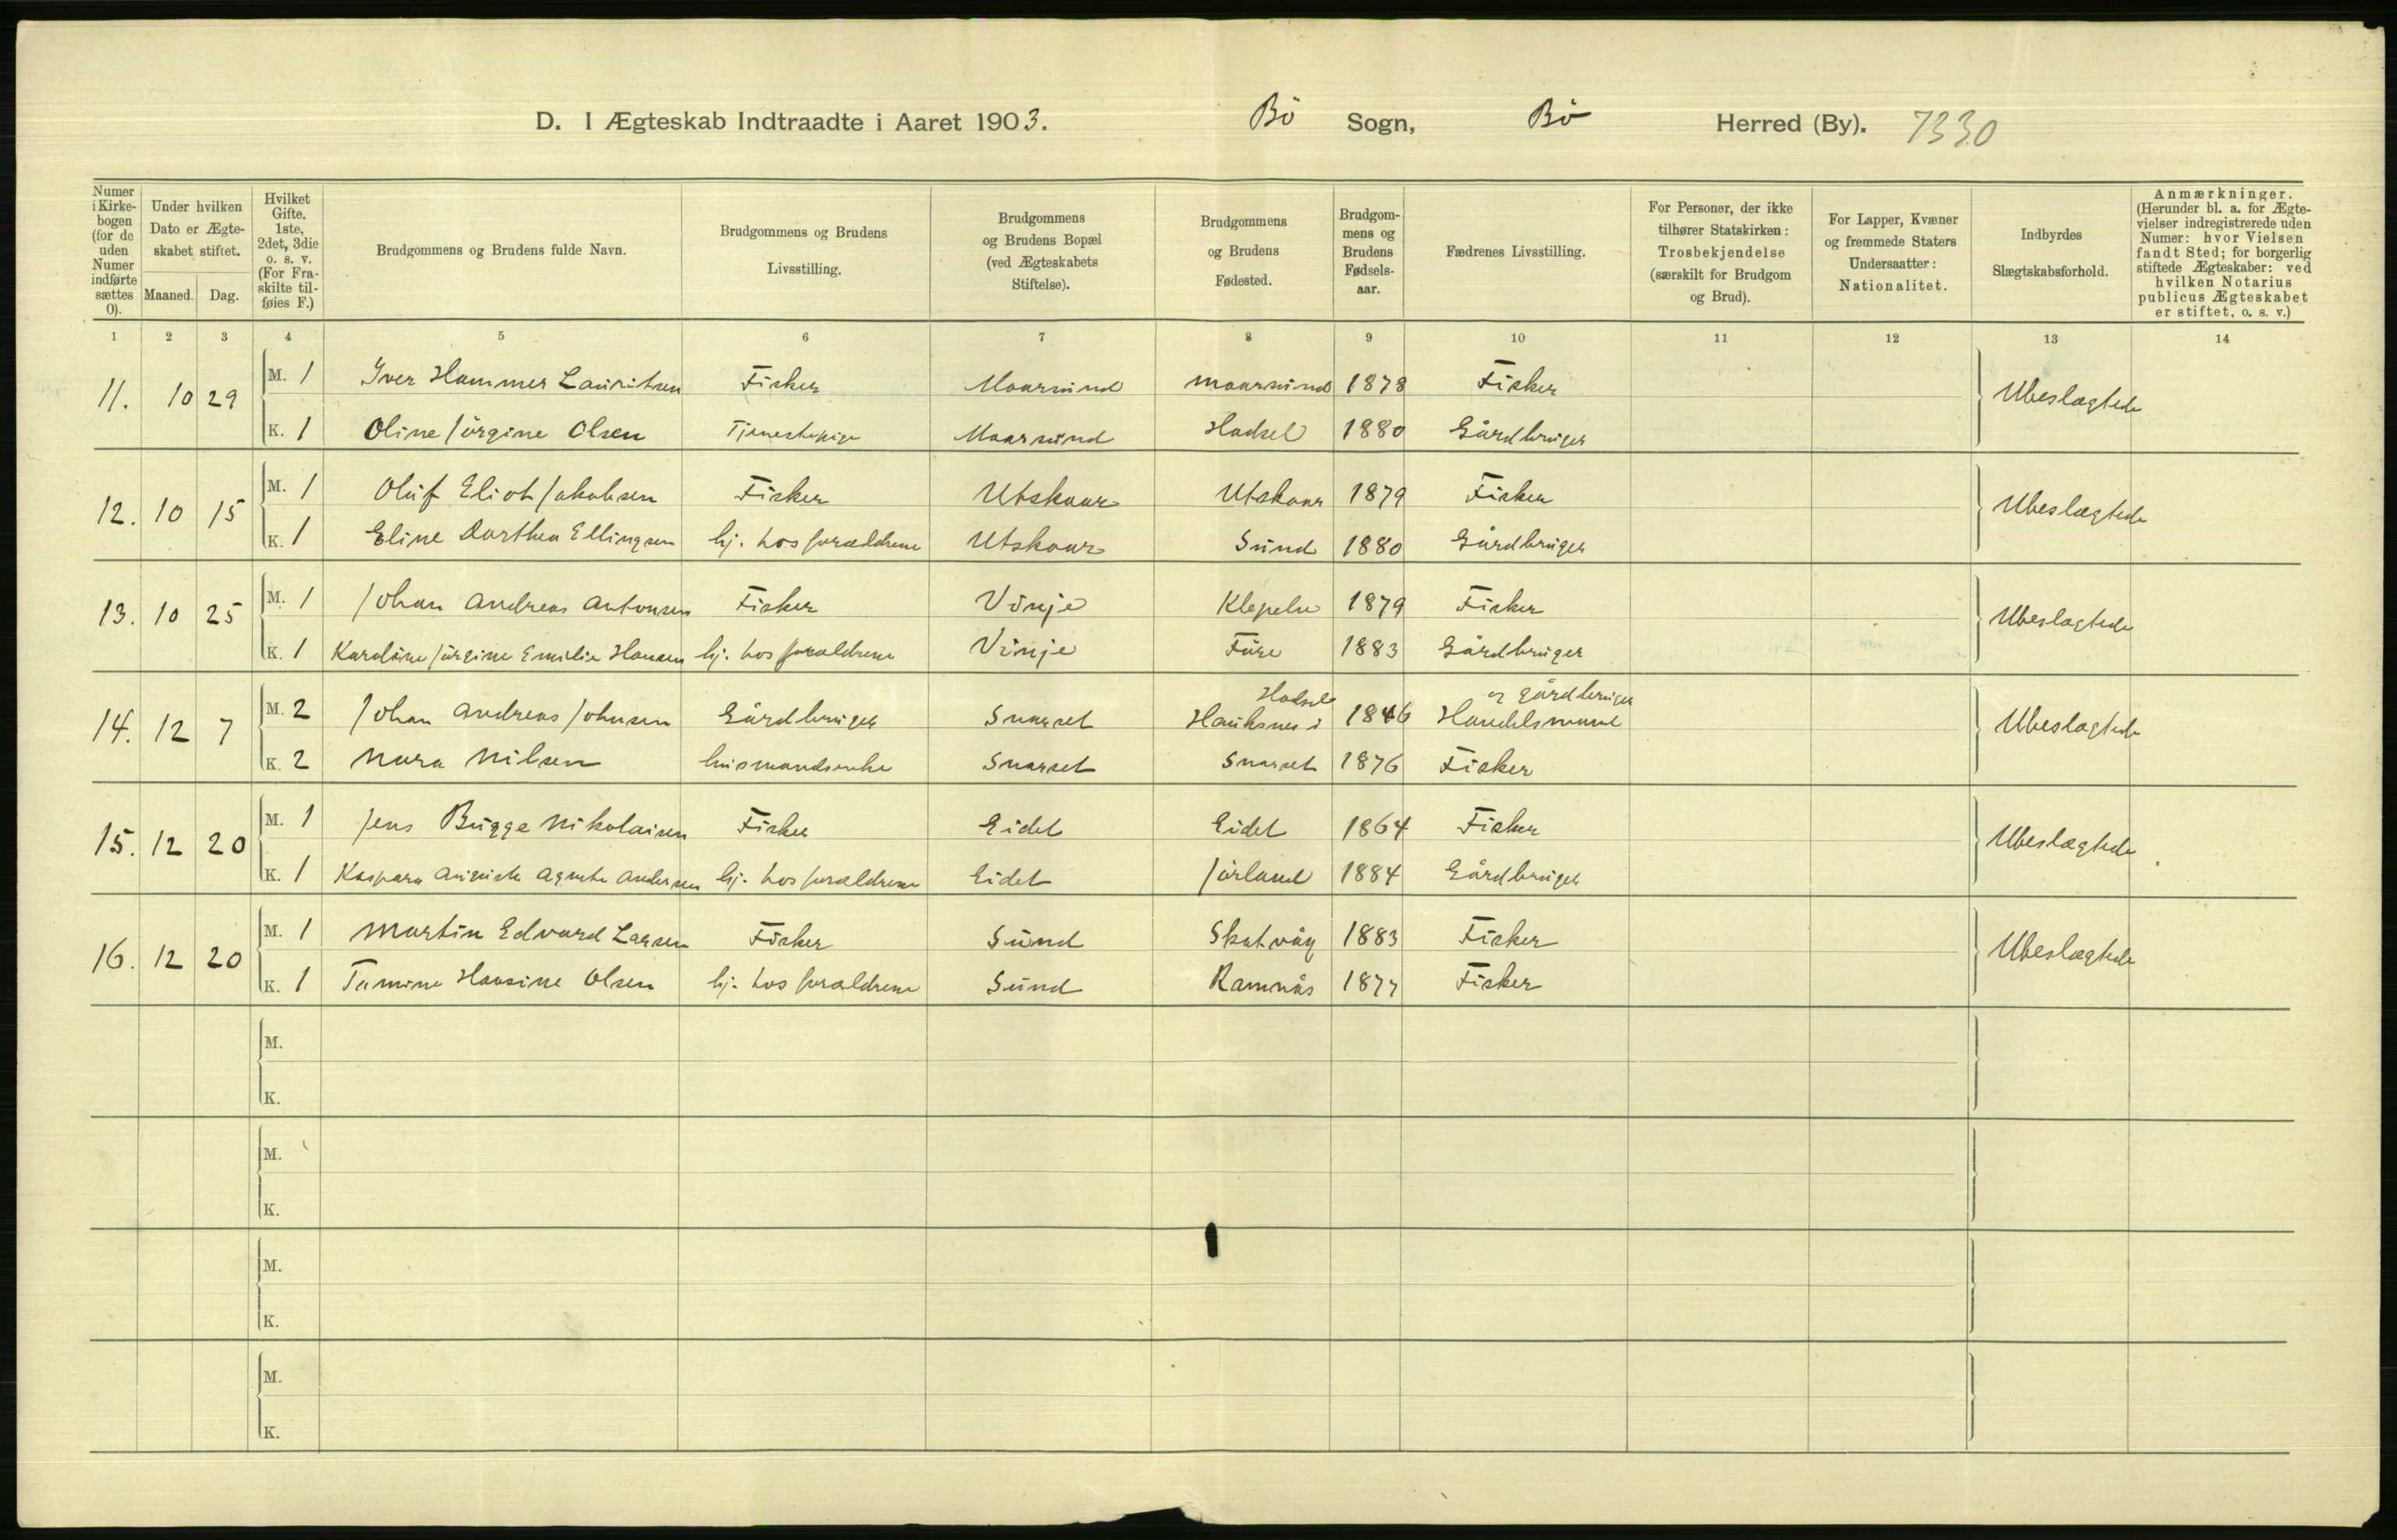 D. I Ægteskab Indtraadte i Aaret 1903. Bö Sogn, Bö Herred (By). 7330
Numer i Kirke-bogen (for de uden Numer indførte sættes 0).
Under hvilken Dato er Ægte-skabet stiftet.
Maaned. Dag.
Hvilket Gifte. 1ste, 2det, 3die o. s. v. (For Fra-skilte til-føies F.)
Brudgommens og Brudens fulde Navn.
Brudgommens og Brudens Livsstilling.
Brudgommens og Brudens Bopæl (ved Ægteskabets Stiftelse).
Brudgommens og Brudens Fødested.
Brudgom-mens og Brudens Fødsels-aar.
Fædrenes Livsstilling.
For Personer, der ikke tilhører Statskirken: Trosbekjendelse (særskilt for Brudgom og Brud).
For Lapper, Kvæner og fremmede Staters Undersaatter: Nationalitet.
Indbyrdes Slægtskabsforhold.
Anmærkninger. (Herunder bl. a. for Ægte-vielser indregistrerede uden Numer: hvor Vielsen fandt Sted; for borgerlig stiftede Ægteskaber: ved hvilken Notarius publicus Ægteskabet er stiftet, o. s. v.)
1 2 3 4 5 6 7 8 9 10 11 12 13 14
11. 10 29 M. 1 Iver Hammer Lauritsen Fisker Maarsund Maarsund 1878 Fisker Ubeslægtede
K. 1 Oline Jörgine Olsen Tjenestepige Maarsund Hadsel 1880 Gårdbruger
12. 10 15 M. 1 Oluf Eliot Jakobsen Fisker Utskaar Utskaar 1879 Fisker Ubeslægtede
K. 1 Eline Dorthea Ellingsen hj. hos forældrene Utskaar Sund 1880 Gårdbruger
13. 10 25 M. 1 Johan Andreas Antonsen Fisker Vinje 1879 Fisker Ubeslægtede
K. 1 Karoline Jörgine Emilie Hansen hj. hos forældrene Vinje Före 1883 Gårdbruger
14. 12 7 M. 2 Johan Andreas Johnsen Gårdbruger Snarset Hauknes i Hadsel 1846 Handelsmand og gårdbruger Ubeslægtede
K. 2 Nora Nilsen husmandsenke Snarset Snarset 1876 Fisker
15. 12 20 M. 1 Jens Bugge Nikolaisen Fisker Eidet Eidet 1864 Fisker Ubeslægtede
K. 1 Kaspara Auguste Agnete Andersen hj. hos forældrene Eidet Jörland 1884 Gårdbruger
16. 12 20 M. 1 Martin Edvard Larsen Fisker Sund Skatvåg 1883 Fisker Ubeslægtede
K. 1 Tomine Hansine Olsen hj. hos forældrene Sund Ramnås 1877 Fisker
M.
K.
M.
K.
M.
K.
M.
K.